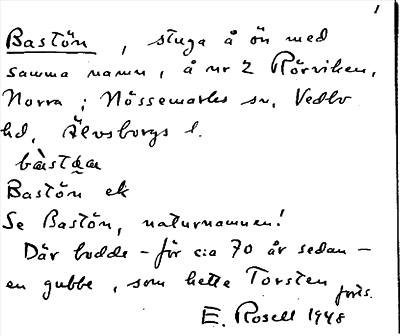 1
Bastön, stuga å ön med
samma namn, å nr 2 Rörviken,
Norra ; Nössemarks sn, Vedbo
hd, Älvsborgs l.
Bastön ek
Se Bastön, naturnamnen!
Där bodde - för c:a 70 år sedan -
en gubbe, som hette Torsten
forts.
E. Rosell 1948